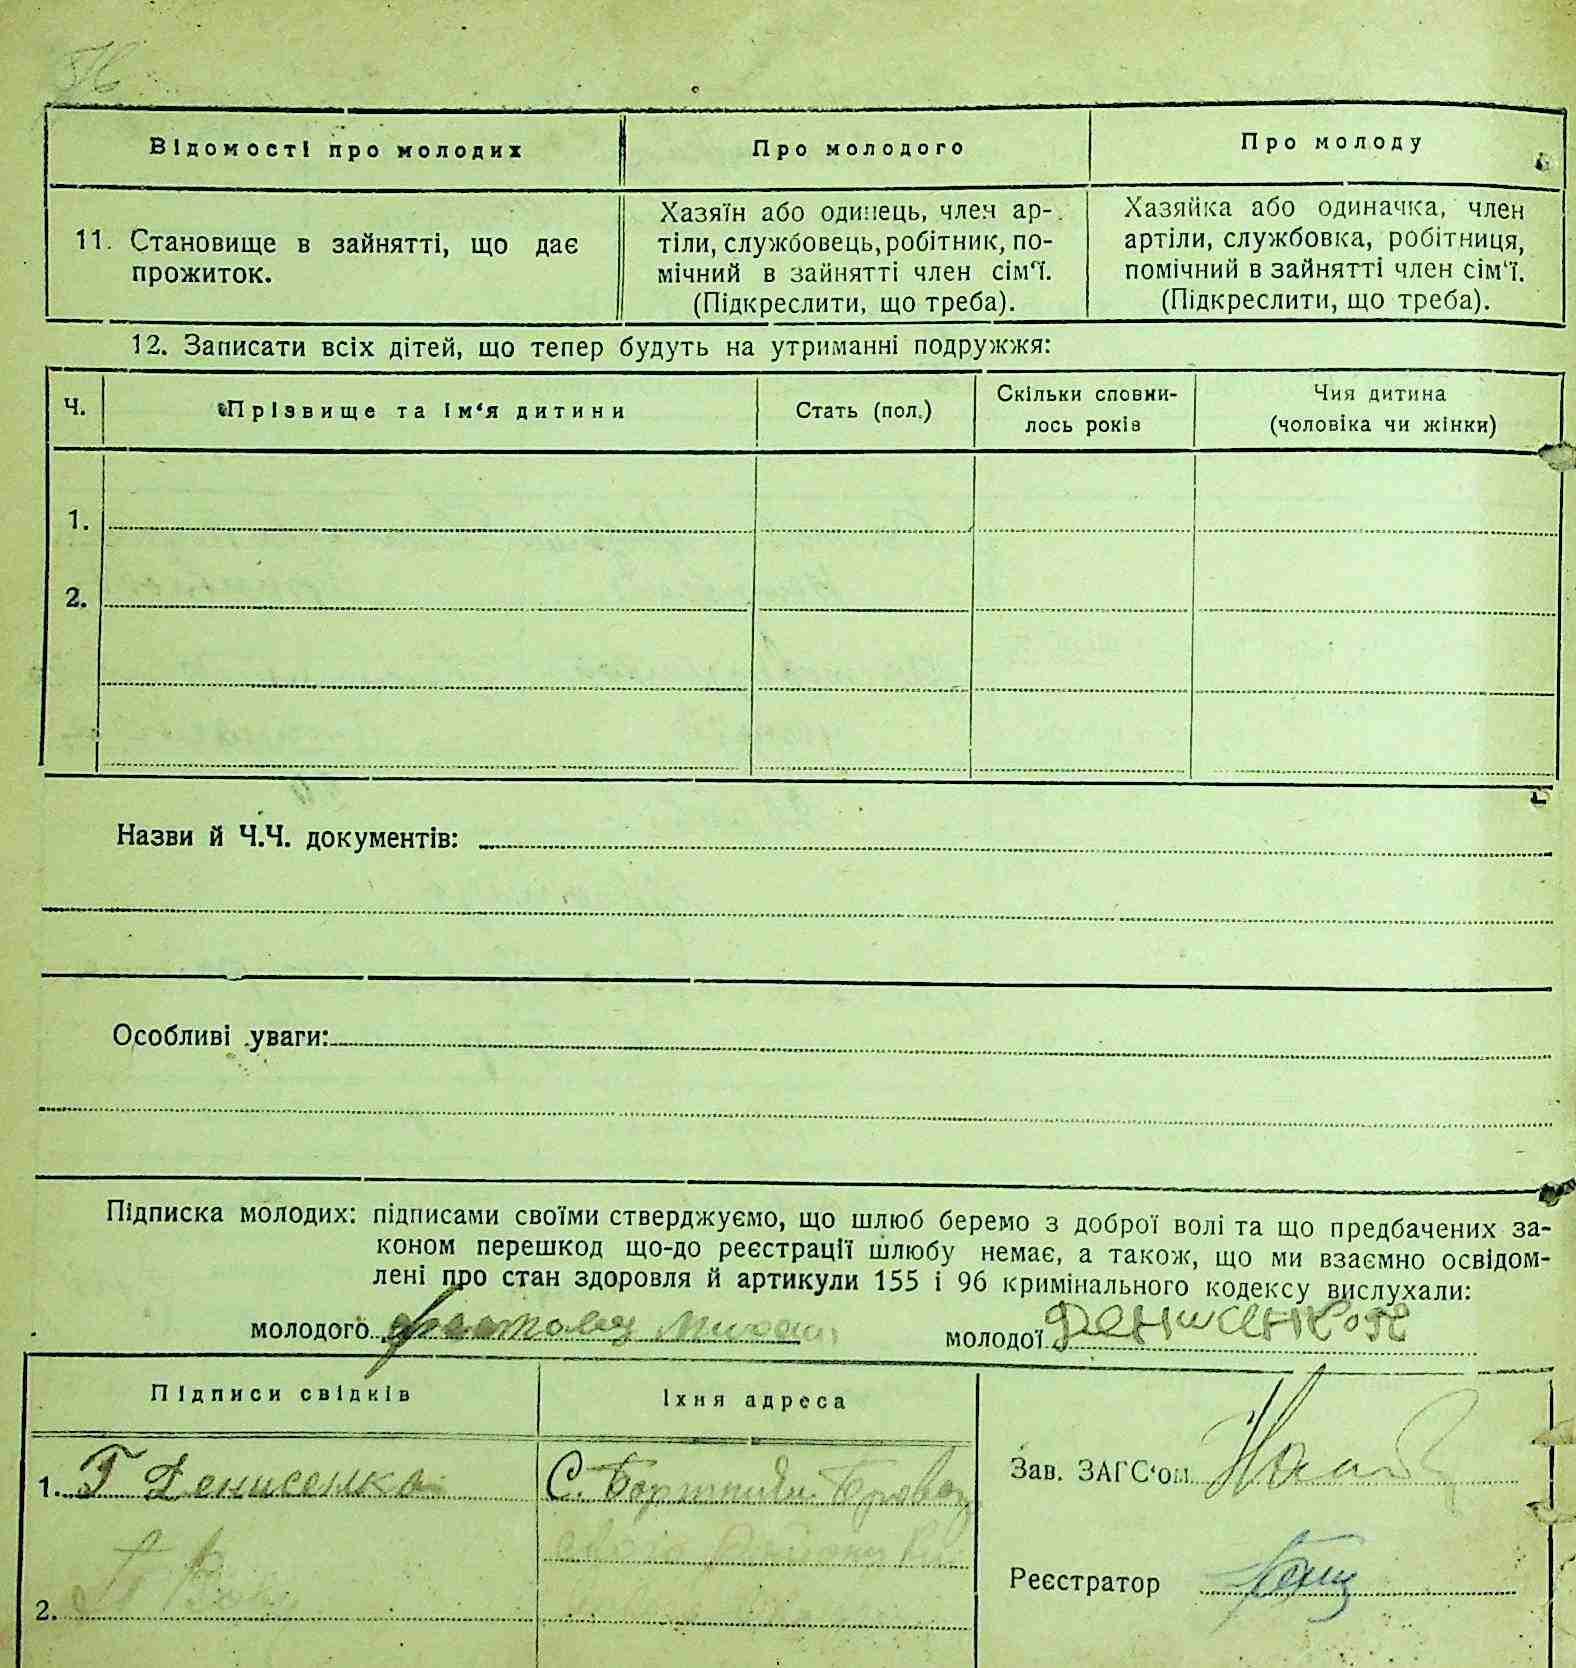 Відомості про молодих
Про молодого
Про молоду
11. Становище в зайнятті, що дає
прожиток.
Хазяїн або одинець, член ар-
тіли, службовець, робітник, по-
мічний в зайнятті член сім'ї.
(Підкреслити, що треба).
Хазяйка або одиначка, член
артіли, службовка, робітниця,
помічний в зайнятті член сім'ї.
(Підкреслити, що треба).
12. Записати всіх дітей, що тепер будуть на утриманні подружжя:
Ч.
Прізвище та ім'я дитини
Стать (пол.)
Скільки сповни-
лось років
Чия дитина
(чоловіка чи жінки)
1.
2.
Назви й Ч.Ч. документів:
Особливі уваги:
Підписка молодих: підписами своїми стверджуємо, що шлюб беремо з доброї волі та що предбачених за-
коном перешкод що-до реєстрації шлюбу немає, а також, що ми взаємно освідом-
лені про стан здоровля й артикули 155 і 96 кримінального кодексу вислухали:
молодого
молодої
Підписи свідків
Їхня адреса
1. Г Денисенко
С.
Зав. ЗАГС'ом
Реєстратор
2.